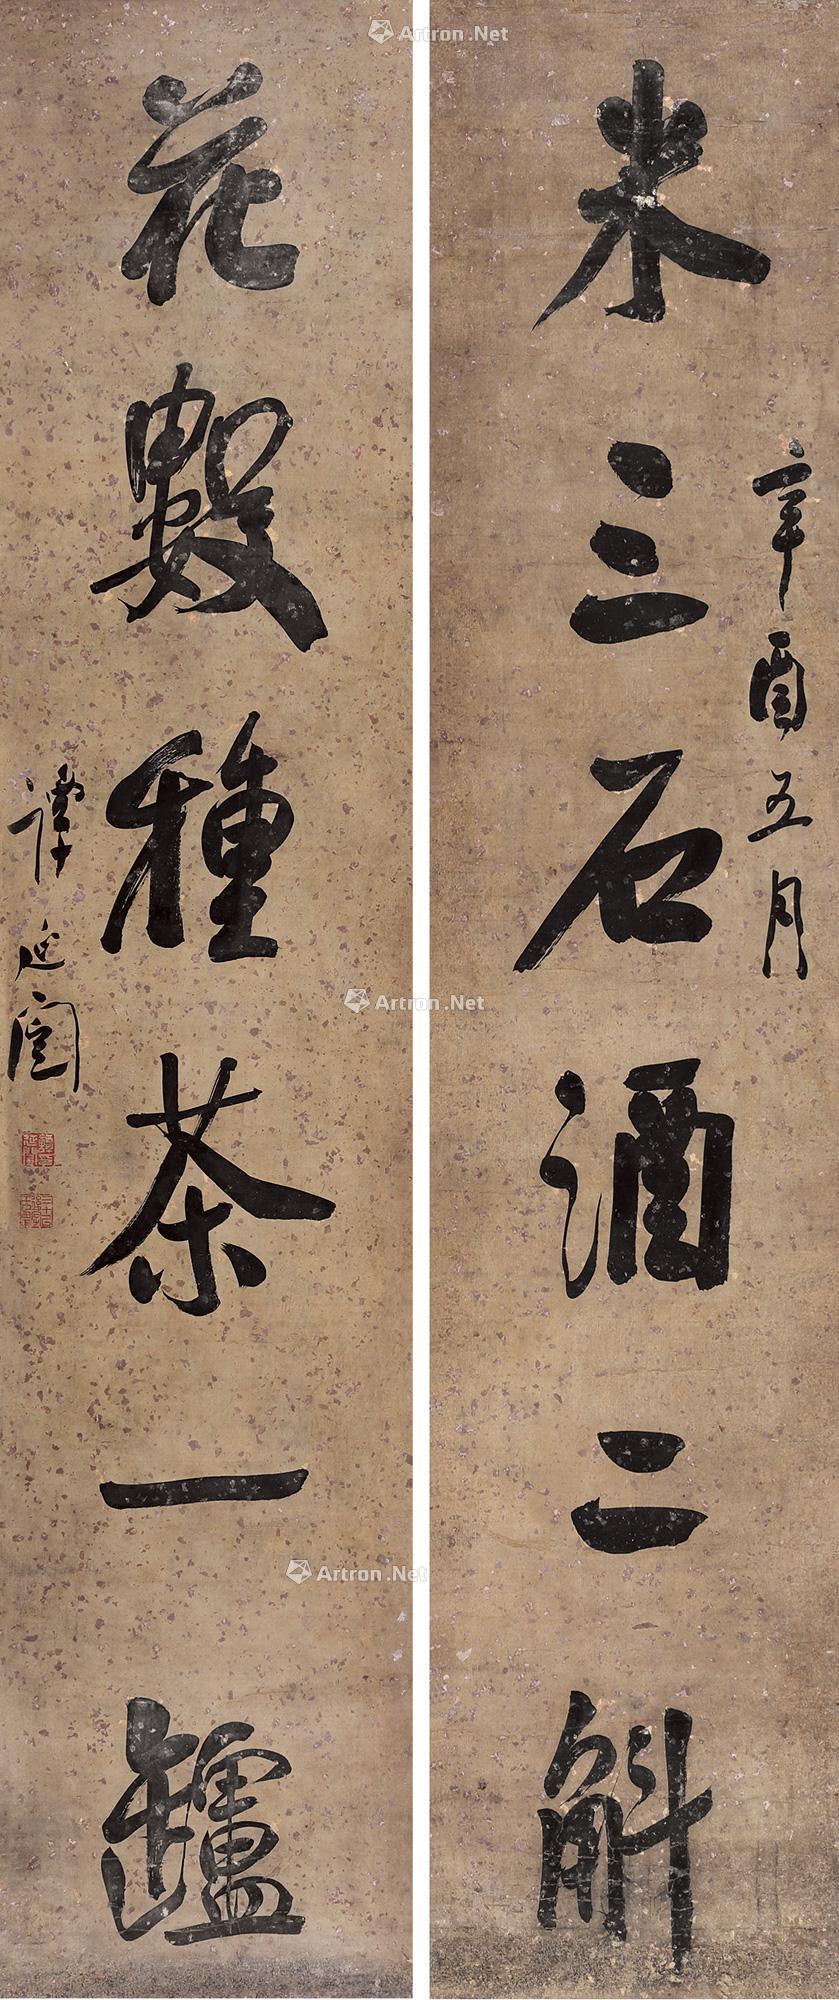 辛酉五月
米三石酒二斛
花數種茶一罏
譚延闓
Artron.Net
Artron.Net
Artron.Net